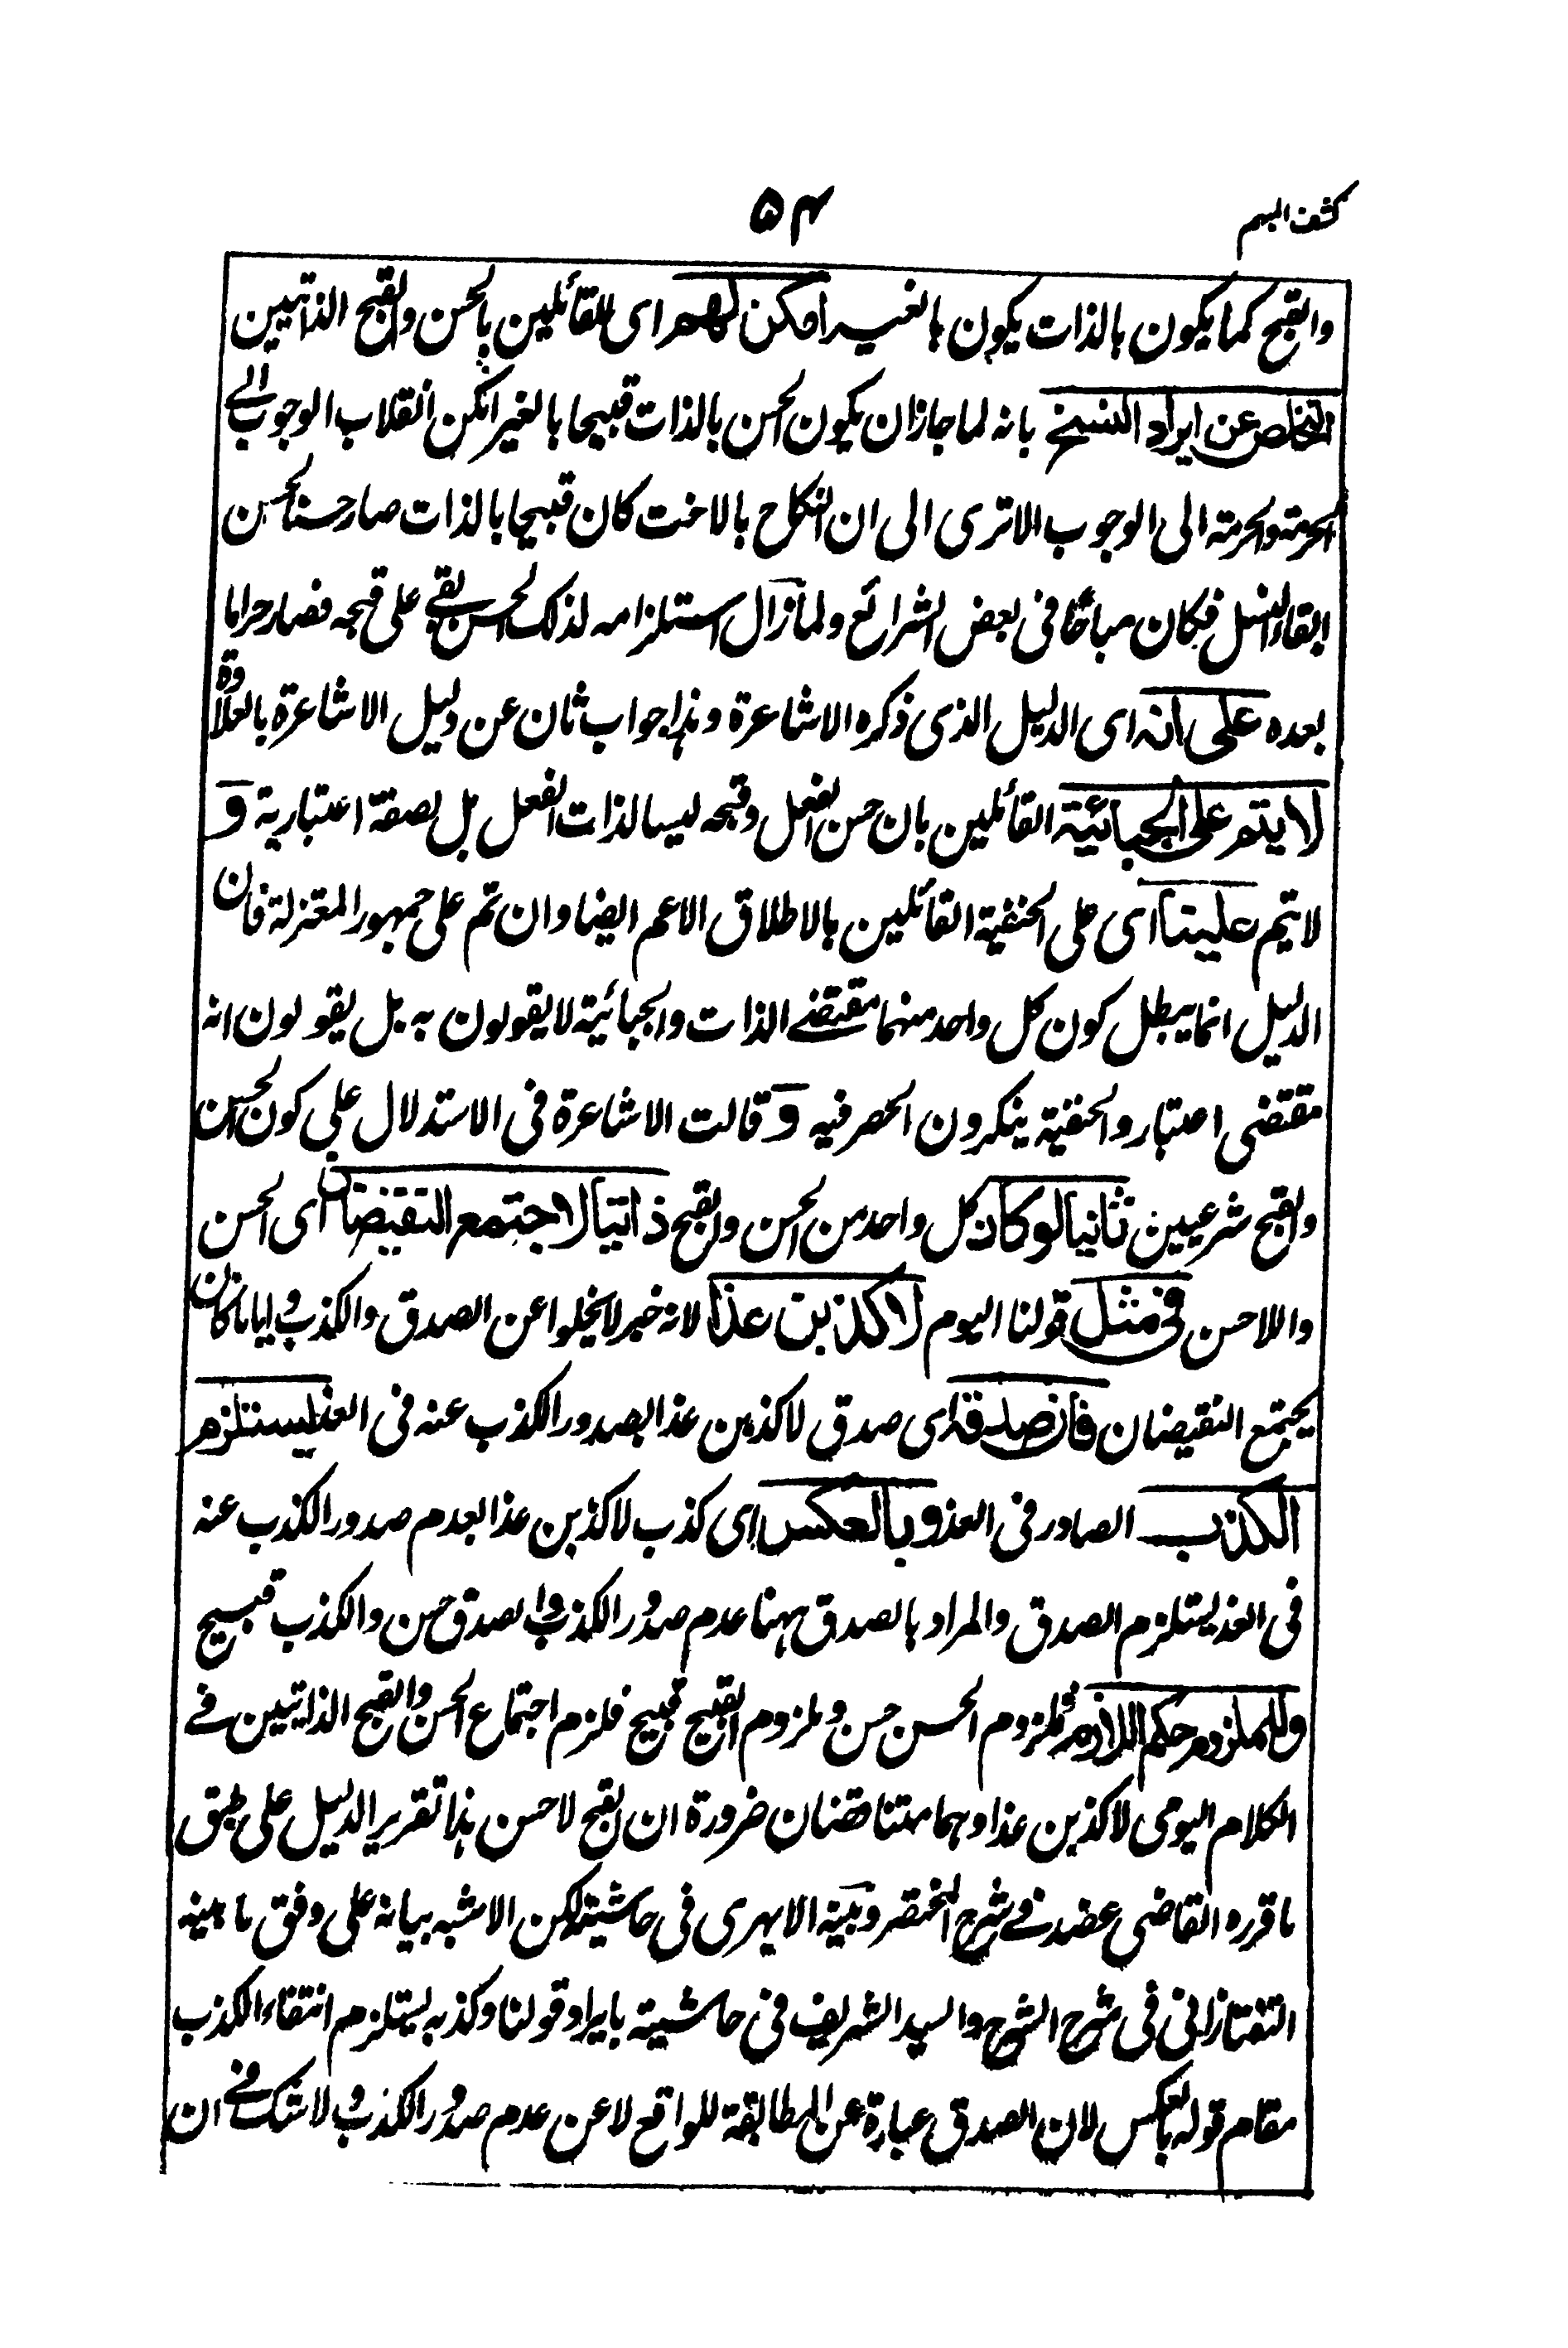 كشف المبهم
۵۴
والقبح كما يكون بالذات يكون بالغير امكن لهم اى للقائلين بالحسن والقبح الذاتيين
التخلص عن ايراد النسخ بانه لما جاز ان يكون الحسن بالذات قبيحا بالغير امكن انقلاب الوجوب الى
الحرمة والحرمة الى الوجوب الا ترى الى ان النكاح بالاخت كان قبيحا بالذات صار حسنا لحسن
ابقاء النسل فكان مباحا فى بعض الشرائع ولما زال استلزامه لذلك الحسن بقى على قبحه فصار حراما
بعده على انه اى الدليل الذى ذكره الاشاعرة وهذا جواب ثان عن دليل الاشاعرة بالعلاوة
لا يتم على الجبائية القائلين بان حسن الفعل وقبحه ليسا لذات الفعل بل لصفة اعتبارية و
لا يتم علينا اى على الحنفية القائلين بالاطلاق الاعم ايضا وان تم على جمهور المعتزلة فان
الدليل انما يبطل كون كل واحد منهما مقتضى الذات والجبائية لا يقولون به بل يقولون انه
مقتضى اعتبار والحنفية ينكرون الحصر فيه و قالت الاشاعرة فى الاستدلال على كون الحسن
والقبح شرعيين ثانيا لو كان كل واحد من الحسن والقبح ذاتيا لاجتمع النقيضان اى الحسن
واللاحسن فى مثل قولنا اليوم لاكذبن غدا لانه خبر لا يخلوا عن الصدق والكذب و اياما كان
يجتمع النقيضان فان صدقه اى صدق لاكذبن غدا بصدور الكذب عنه فى الغد يستلزم
الكذب الصادر فى الغد وبالعكس اى كذب لاكذبن غدا بعدم صدور الكذب عنه
فى الغد يستلزم الصدق والمراد بالصدق ههنا عدم صدور الكذب و الصدق حسن والكذب قبيح
وللملزوم حكم اللازم فملزوم الحسن حسن وملزوم القبيح قبيح فلزم اجتماع الحسن والقبح الذاتيين فى
الكلام اليومى لاكذبن غدا وهما متناقضان ضرورة ان القبح لا حسن هذا تقرير الدليل على طبق
ما قرره القاضى عضد فى شرح المختصر وبينه الابهرى فى حاشيته لكن الاشبه بيانه على وفق ما بينه
التفتازانى فى شرح الشرح والسيد الشريف فى حاشيته بايراد قولنا وكذبه يستلزم انتفاء الكذب
مقام قوله بالعكس لان الصدق عبارة عن المطابقة للواقع لا عن عدم صدور الكذب و لا شك فى ان